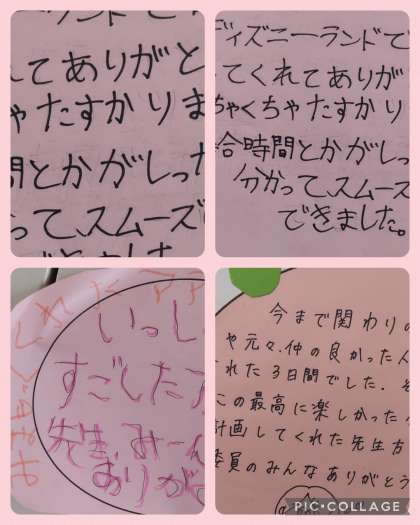 ィズニーランドで
てありがと
ゃたすかりま
間とかがしった
って、スムーズ
できました
ディズニーランドで
てくれてありが
ちゃくちゃたすかり
合時間とかがしっ
分かって、スムーズ
できました。
いっし
すごした
先生、みーん
ありが
今まで関わりの
や元々、仲の良かった人
れた3日間でした。そ
この最高に楽しかった
計画してくれた先生方
委員のみんなありがとう
PIC•COLLAGE